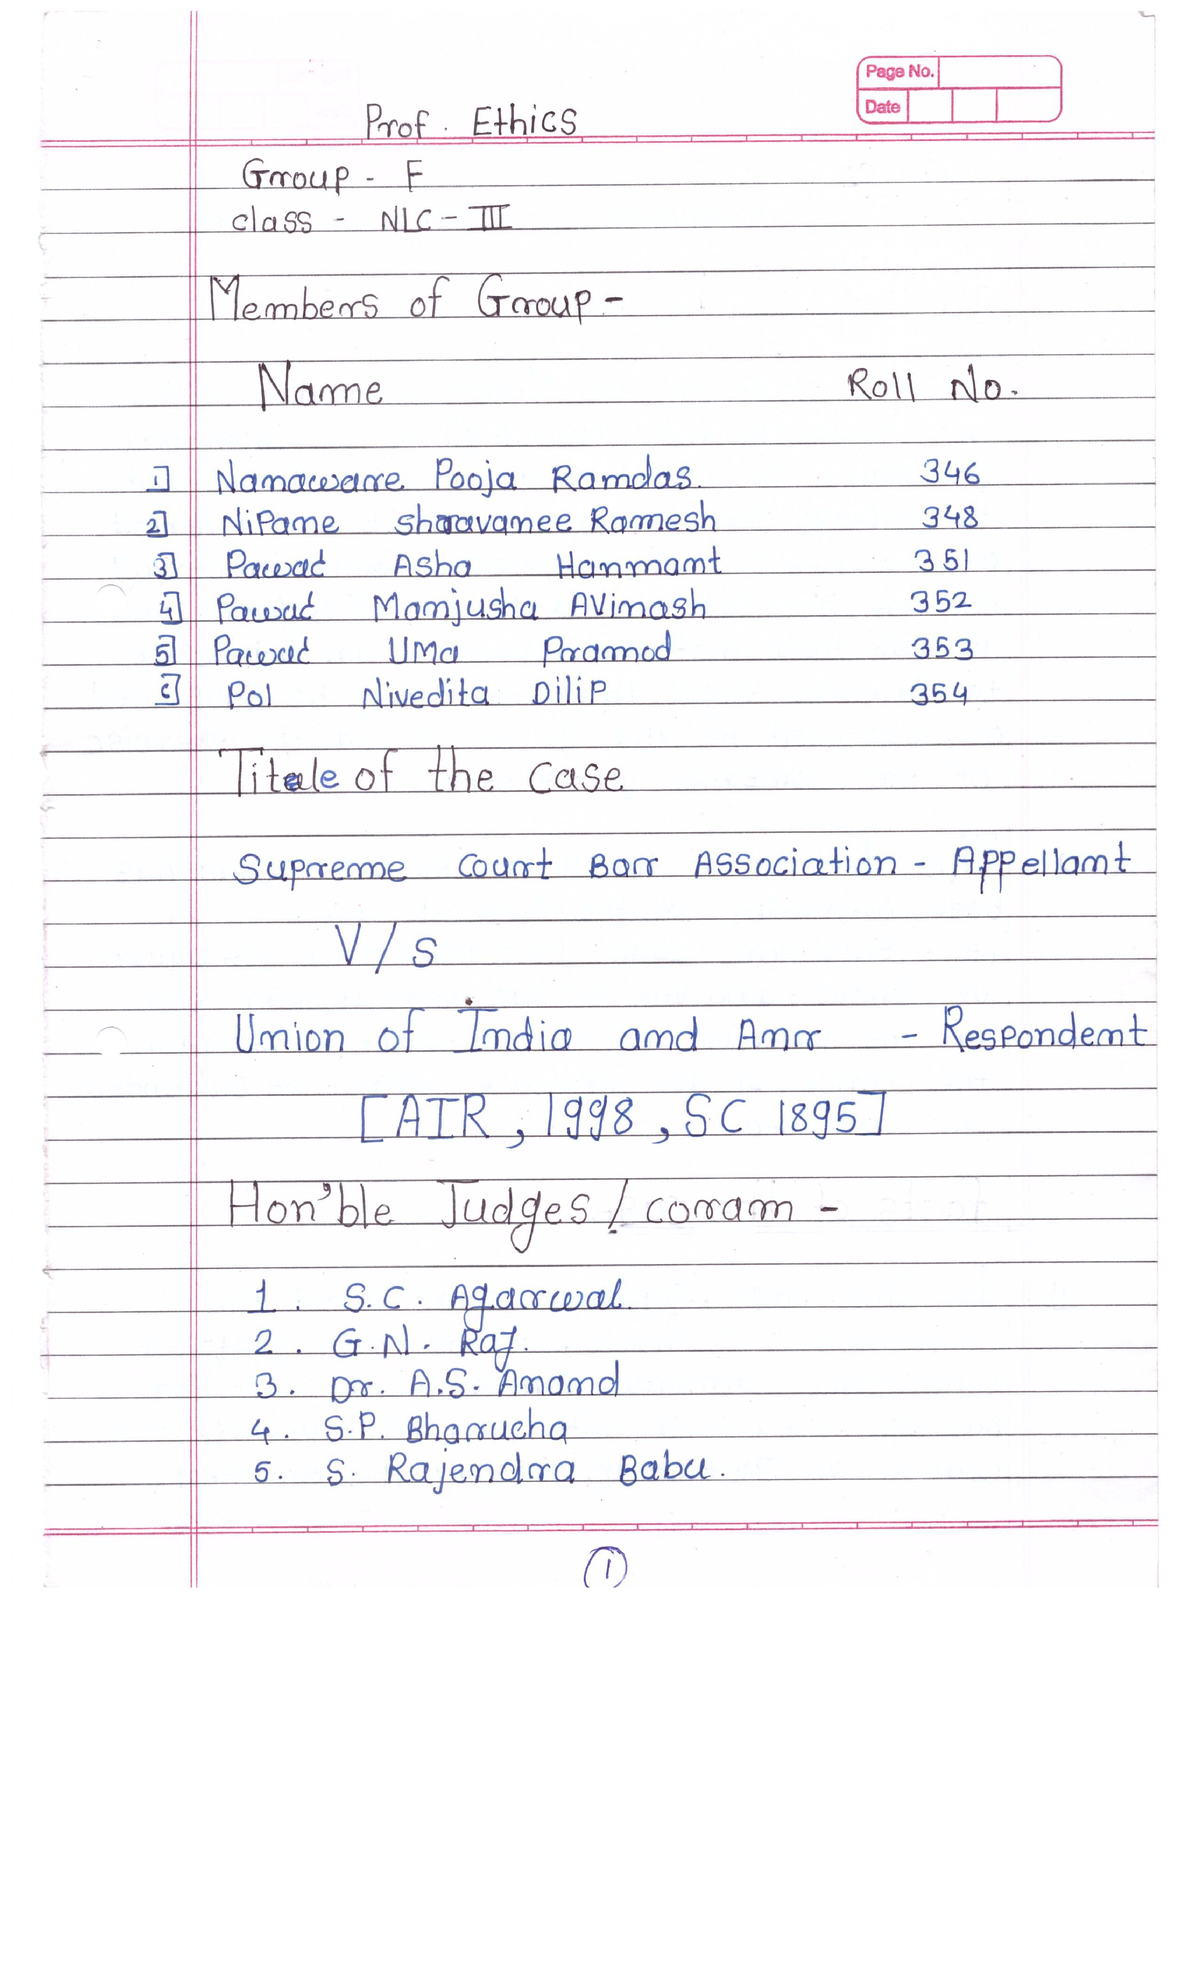 Page No.
Date
Prof. Ethics
Group - F
class - NLC - III
Members of Group -
Name Roll No.
1] Nanaware Pooja Ramdas. 346
2] Nipane Shravanee Ramesh 348
3] Pawad Asha Hanmant 351
4] Pawad Manjusha Avinash 352
5] Pawad Uma Pramod 353
6] Pol Nivedita Dilip 354
Titale of the case
Supreme Court Bar Association - Appellant
V/s
Union of India and Anr - Respondent
[AIR, 1998, SC 1895]
Hon'ble Judges / coram -
1. S.C. Agarwal.
2. G.N. Raj.
3. Dr. A.S. Anand
4. S.P. Bharucha
5. S. Rajendra Babu.
1